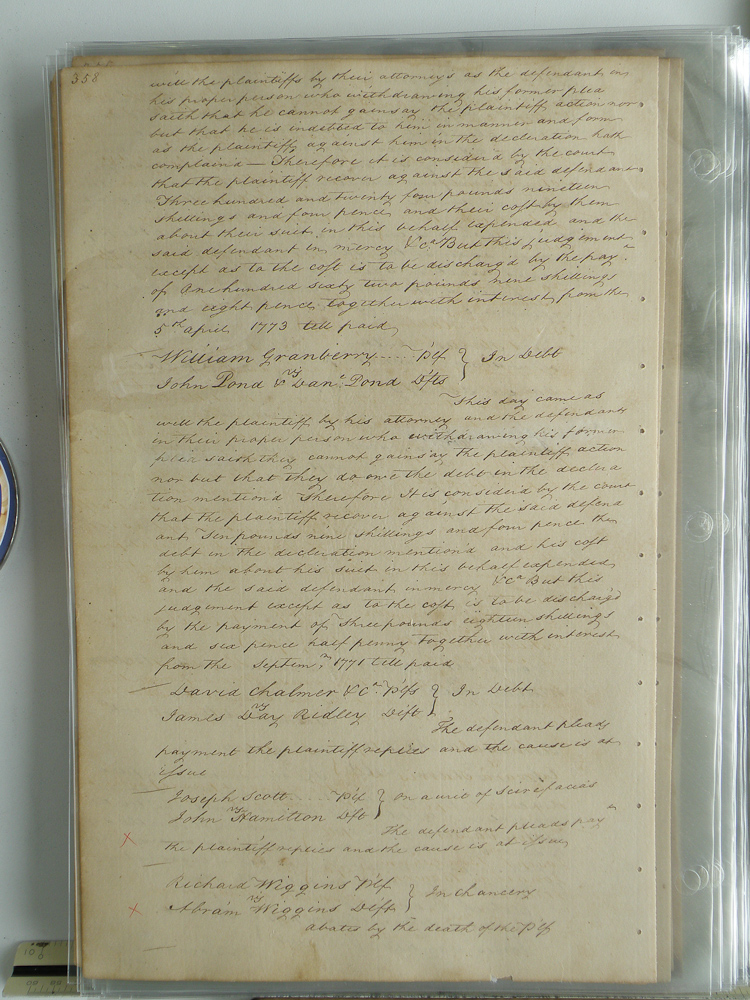 358
well the plaintiffs by their attorneys as the defendant in
his proper person who withdrawing his former plea
saith that he cannot gainsay the plaintiffs action nor
but that he is indebted to him in manner and form
as the plaintiffs against him in the declaration hath
complaind — Therefore it is considerd by the court
that the plaintiff recover against the said defendant
Three hundred and twenty four pounds nineteen
shillings and four pence and their cost by them
about their suit in this behalf expended and the
said defendant in mercy &Ca But this judgement
except as to the cost is to be discharg'd by the pay.
of One hundred sixty two pounds nine shillings
and eight pence together with interest from the
5th april 1773 till paid
William Granberry .... Plf } In Debt
vs
John Pond & Danl Pond Dfts
This day came as
well the plaintiff by his attorney and the defendants
in their proper person who withdrawing his former
plea saith they cannot gainsay the plaintiff action
nor but that they do owe the debt in the declara
tion mentiond Therefore It is considerd by the court
that the plaintiff recover against the said defend
ant Ten pounds nine shillings and four pence the
debt in the declaration mentiond and his cost
by him about his suit in this behalf expended
and the said defendant in mercy &Ca But this
judgement except as to the cost is to be dischargd
by the payment of three pounds eighteen shillings
and six pence half penny together with interest
from the Septemr 1771 till paid
David Chalmer & Co. Plfs } In Debt
vs
James Day Ridley Dift
The defendant pleads
payment the plaintiff replies and the cause is at
issue
Joseph Scott .... Plf } on a writ of Scirefacias
vs
John Hamilton Dft
The defendant pleads pay
the plaintiff replies and the cause is at issue
x
Richard Wiggins Plf } In Chancery
vs
x Abram Wiggins Dift
abates by the death of the Plf